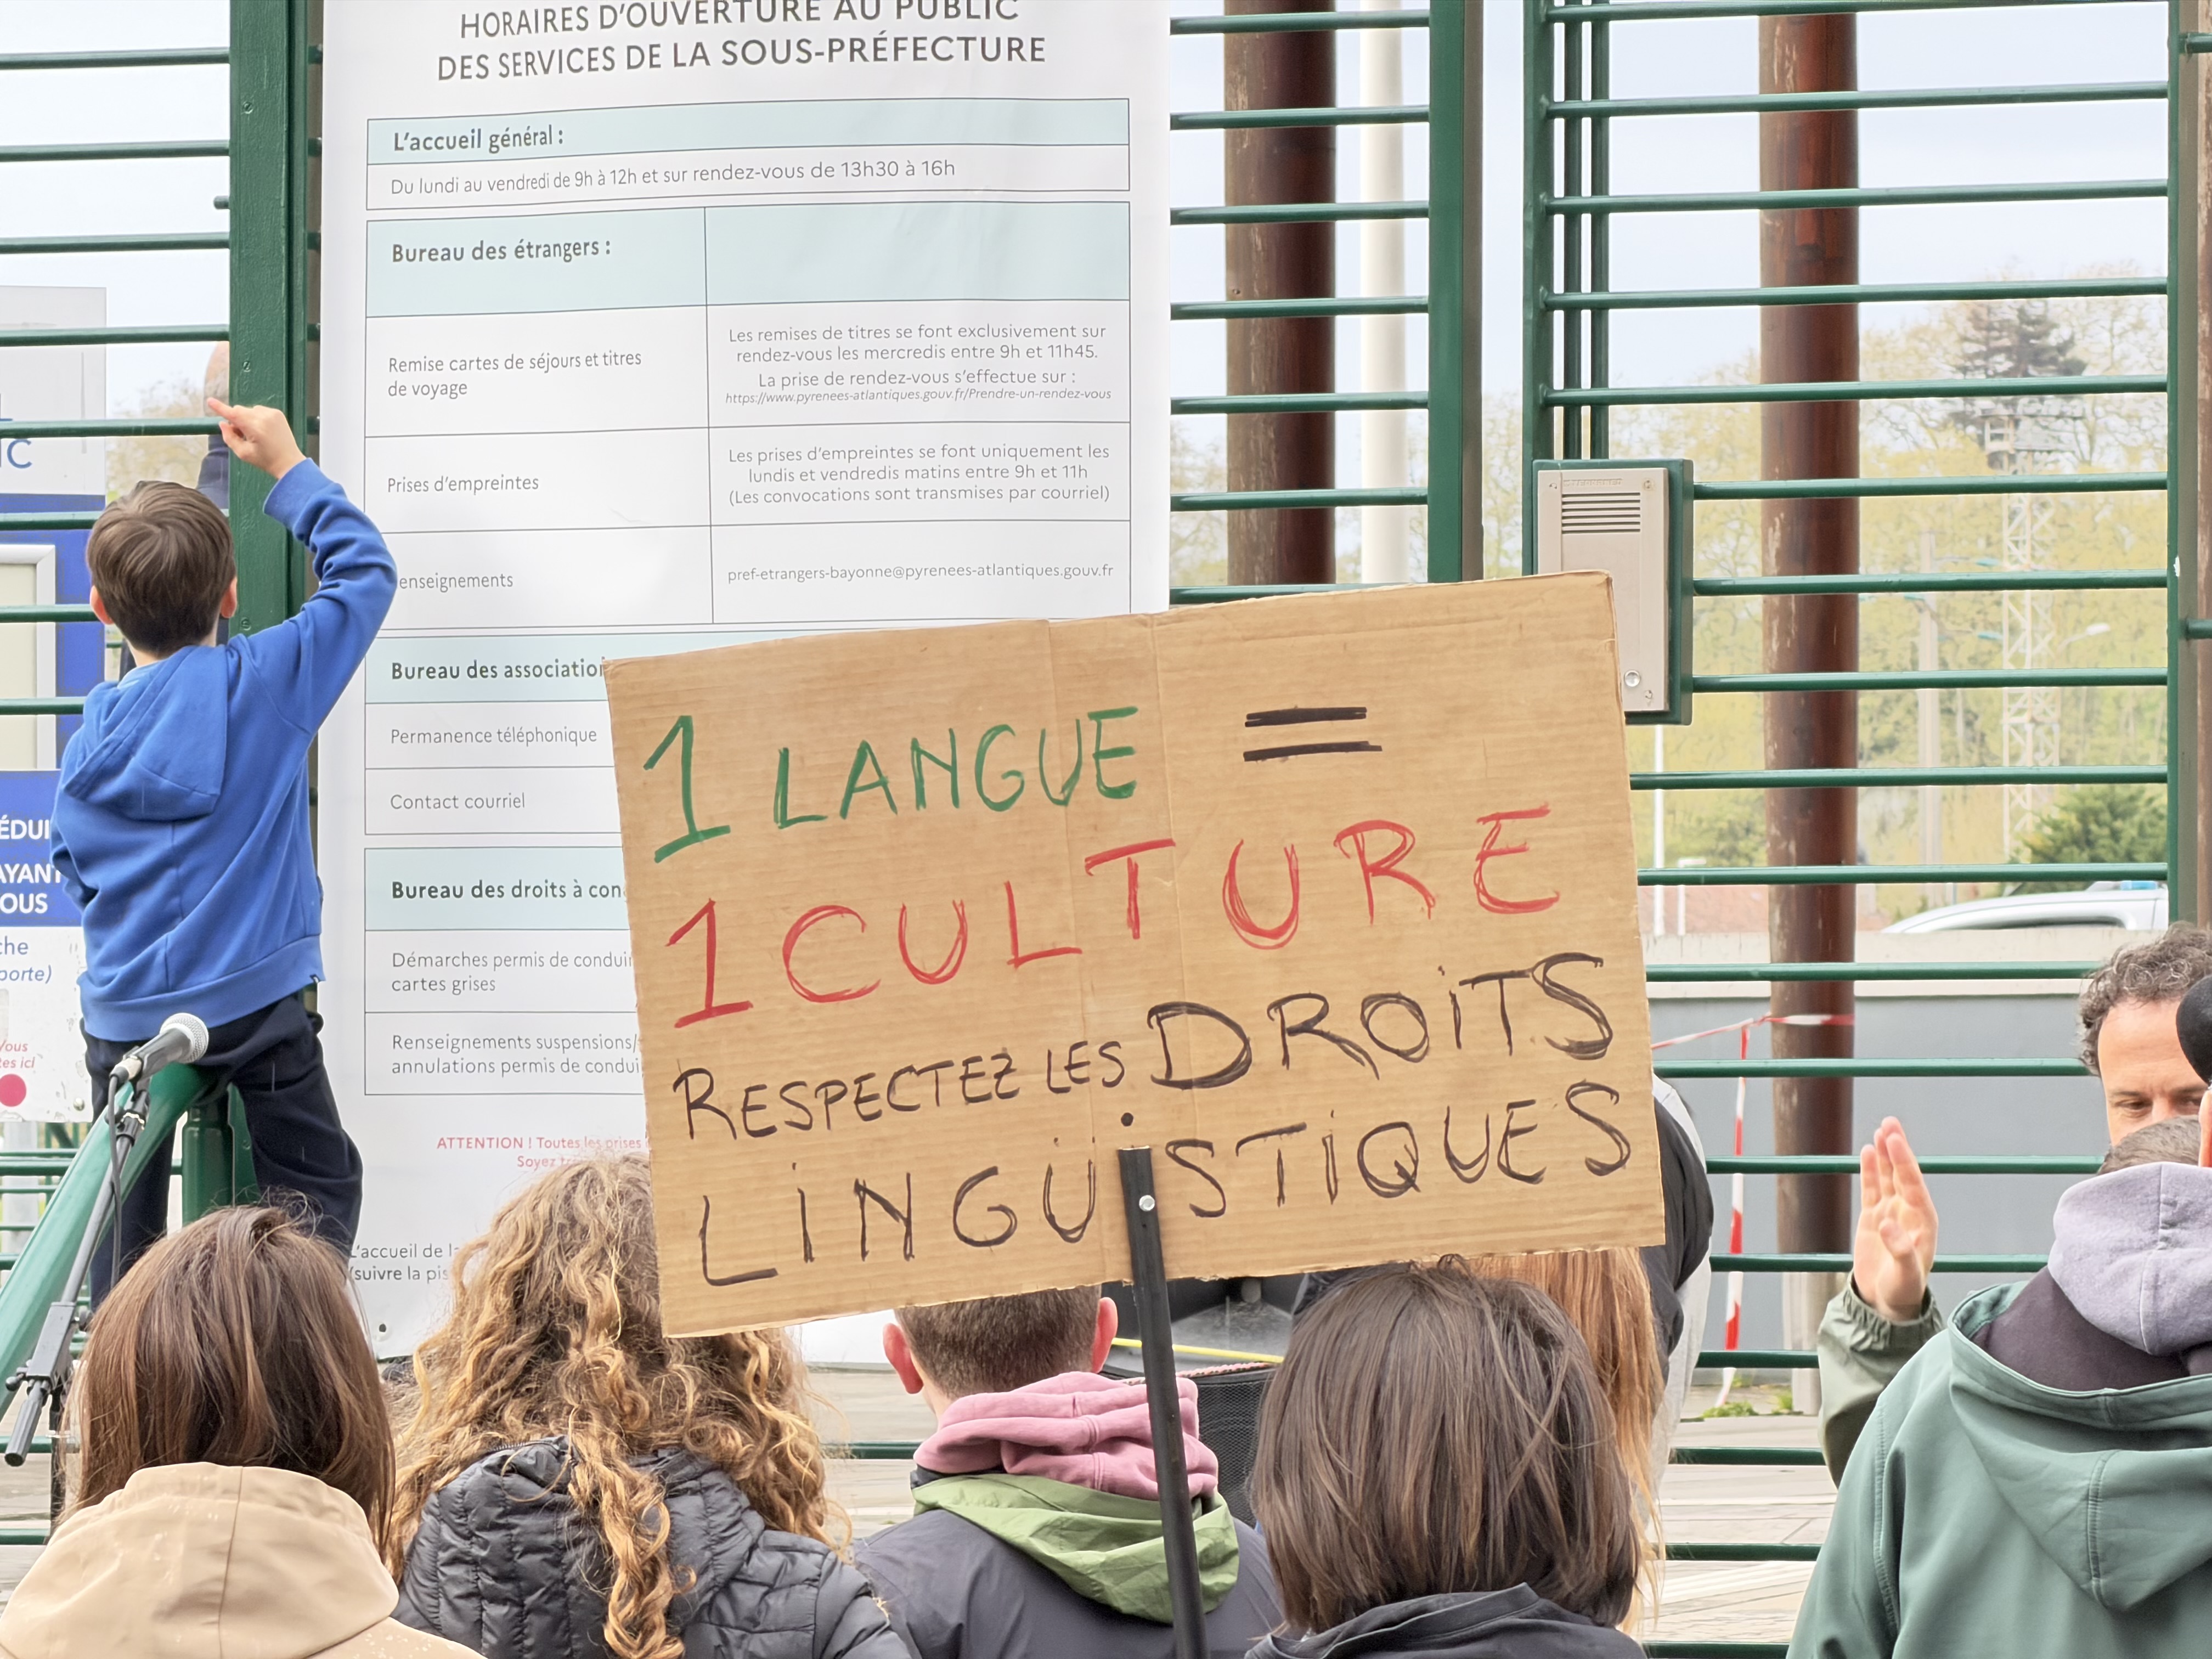 HORAIRES D'OUVERTURE AU PUBLIC
DES SERVICES DE LA SOUS-PRÉFECTURE
L'accueil général :
Du lundi au vendredi de 9h à 12h et sur rendez-vous de 13h30 à 16h
Bureau des étrangers :
Remise cartes de séjours et titres
de voyage
Les remises de titres se font exclusivement sur
rendez-vous les mercredis entre 9h et 11h45.
La prise de rendez-vous s'effectue sur :
https://www.pyrenees-atlantiques.gouv.fr/Prendre-un-rendez-vous
Prises d'empreintes
Les prises d'empreintes se font uniquement les
lundis et vendredis matins entre 9h et 11h
(Les convocations sont transmises par courriel)
enseignements
pref-etrangers-bayonne@pyrenees-atlantiques.gouv.fr
Bureau des association
Permanence téléphonique
Contact courriel
Bureau des droits à con
Démarches permis de condui
cartes grises
Renseignements suspensions/
annulations permis de condui
ATTENTION ! Toutes les prises
Soyez
L'accueil de la
(suivre la pis
1 LANGUE =
1 CULTURE
RESPECTEZ LES DROiTS
LiNGUiSTiQUES
IC
ÉDUI
AYANT
OUS
che
porte)
Vous
tes ici